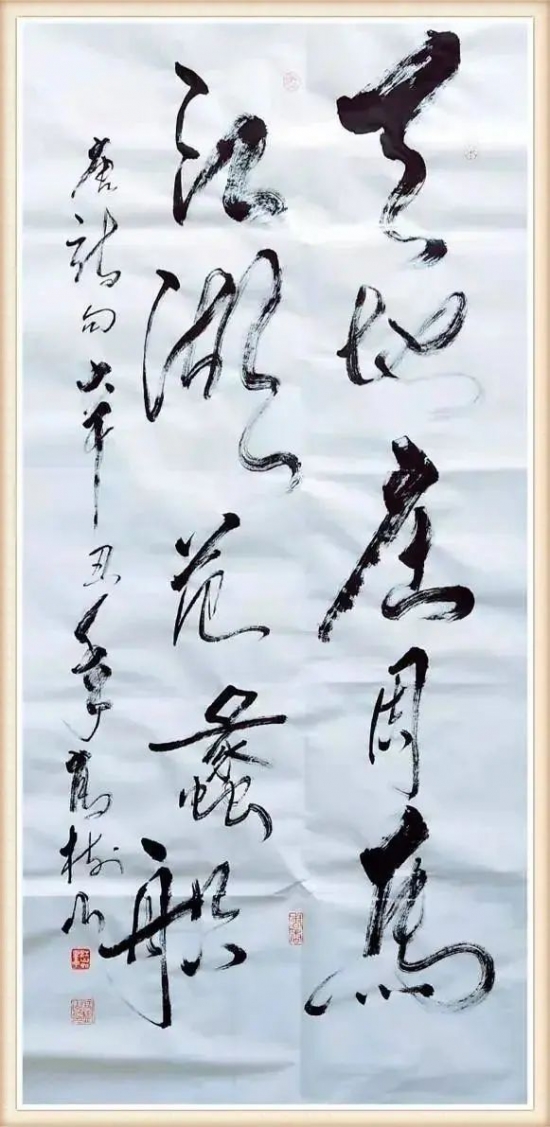 天地庄周馬
江湖范蠡船
唐诗句 辛丑年 树山